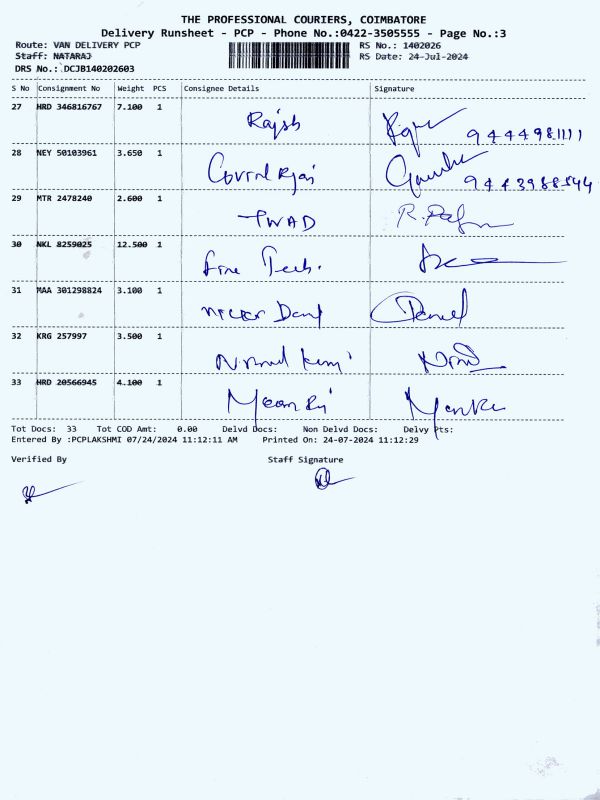 THE PROFESSIONAL COURIERS, COIMBATORE
Delivery Runsheet - PCP - Phone No.:0422-3505555 - Page No.:3
Route: VAN DELIVERY PCP RS No.: 1402026
Staff: NATARAJ RS Date: 24-Jul-2024
DRS No.: DCJB140202603
S No Consignment No Weight PCS Consignee Details Signature
27 HRD 346816767 7.100 1
Rajsh 9444981111
28 NEY 50103961 3.650 1
29 MTR 2478240 2.600 1
TWAD
30 NKL 8259025 12.500 1
Fine Tech.
31 MAA 301298824 3.100 1
32 KRG 257997 3.500 1
33 HRD 20566945 4.100 1
Tot Docs: 33 Tot COD Amt: 0.00 Delvd Docs: Non Delvd Docs: Delvy Pts:
Entered By :PCPLAKSHMI 07/24/2024 11:12:11 AM Printed On: 24-07-2024 11:12:29
Verified By Staff Signature